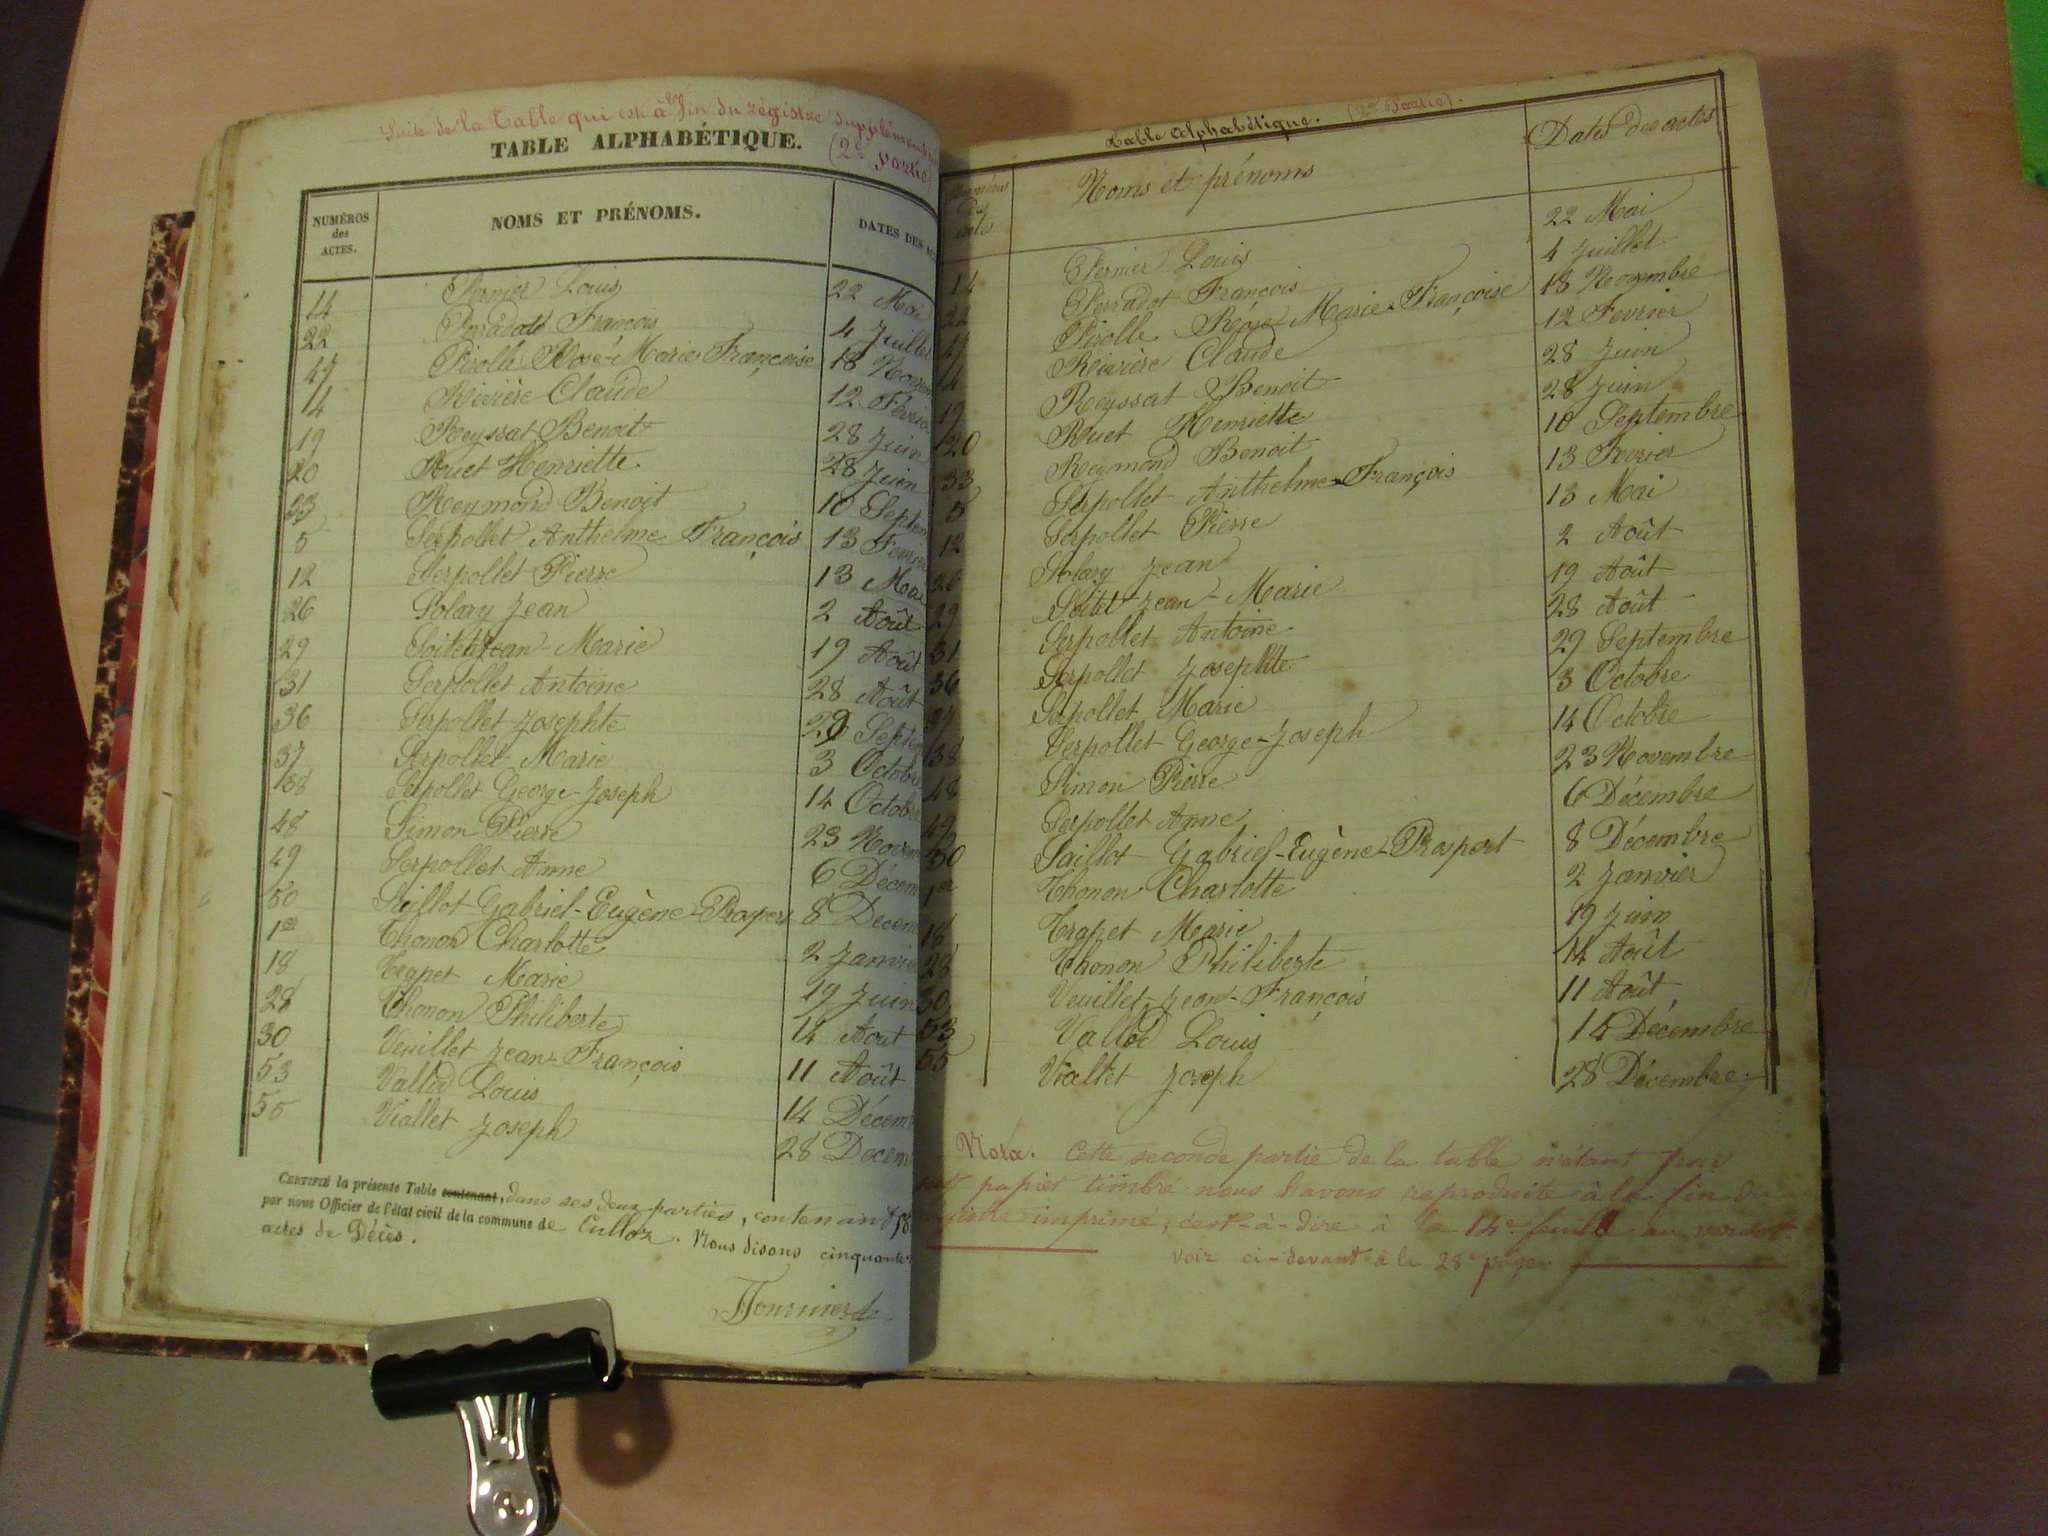 Suite de la Table qui est à la fin du régistre supplémentaire
TABLE ALPHABÉTIQUE.
(2e Partie)
NUMÉROS des ACTES.
NOMS ET PRÉNOMS.
DATES DES
14 Pernier Louis 22 Mai
22 Perradot François 4 Juillet
47 Pirolle Rose-Marie-Françoise 18 Novem
4 Rivière Claude 12 Févrie
19 Reyssat Benoit 28 Juin
20 Ruet Henriette 28 Juin
33 Reymond Benoit 10 Septem
5 Serpollet Anthelme François 13 Fevrie
12 Serpollet Pierre 13 Mai
26 Solary Jean 2 Août
29 Soitet Jean-Marie 19 Août
31 Serpollet Antoine 28 Août
36 Serpollet Josephte 29 Septe
37 Serpollet Marie 3 Octobre
38 Serpollet George-Joseph 14 Octobr
48 Simon Pierre 23 Novem
49 Serpollet Anne 6 Décem
50 Saillot Gabriel-Eugène-Prospert 8 Décem
1er Thonon Charlotte 2 Janvie
18 Trapet Marie 19 Juin
28 Thonon Philiberte 14 Aout
30 Veuillet Jean-François 11 Août
53 Vallod Louis 14 Décem
55 Viallet Joseph 28 Decem
CERTIFIÉ la présente Table contenant, dans ses deux parties, contenant
par nous Officier de l'état civil de la commune de Culloz. Nous disons cinquante
actes de Décès.
Fournier
Table Alphabétique. (2e Partie).
Numéros des actes
Noms et prénoms
Dates des actes
14 Pernier Louis 22 Mai
22 Perradot François 4 Juillet
47 Pirolle Rose-Marie-Françoise 18 Novembre
4 Rivière Claude 12 Fevrier
19 Reyssat Benoit 28 Juin
20 Ruet Henriette 28 Juin
33 Reymond Benoit 10 Septembre
5 Serpollet Anthelme-François 13 Fevrier
12 Serpollet Pierre 13 Mai
26 Solary Jean 2 Août
29 Soitet Jean-Marie 19 Août
31 Serpollet Antoine 28 Août
36 Serpollet Josephte 29 Septembre
37 Serpollet Marie 3 Octobre
38 Serpollet George-Joseph 14 Octobre
48 Simon Pierre 23 Novembre
49 Serpollet Anne 6 Décembre
50 Saillot Gabriel-Eugène-Prospert 8 Décembre
1er Thonon Charlotte 2 Janvier
18 Trapet Marie 19 Juin
28 Thonon Philiberte 14 Août
30 Veuillet-Jean-François 11 Août
53 Vallod Louis 14 Décembre
55 Viallet Joseph 28 Décembre
Nota. Cette seconde partie de la table n'étant pas
papier timbré nous l'avons reproduite à la fin du
imprimé, c'est-à-dire à la 14e feuille au verso
voir ci-devant à la 28e page